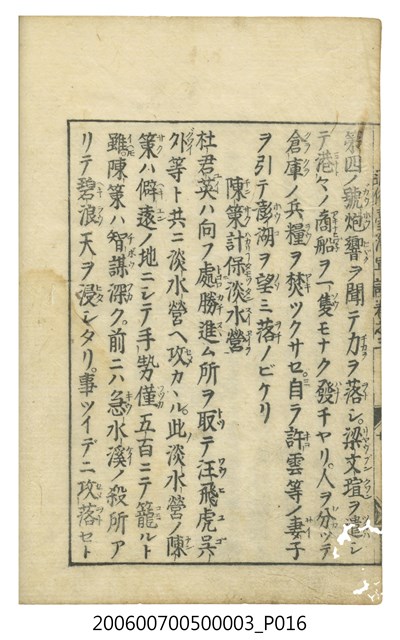 第四ノ號炮響ヲ聞テ力ヲ落シ。梁文瑄ヲ遣シ
テ港々ノ商船ヲ一隻モナク發チヤリ。人ヲ分ツテ
倉庫ノ兵糧ヲ焚ツクサセ。自ラ許雲等ノ妻子
ヲ引テ澎湖ヲ望ミ落ノビケリ
陳策計保淡水營
杜君英ハ向フ處勝進ム所ヲ取テ汪飛虎呉
外等ト共ニ淡水營ヘ攻カヽル。此淡水營ノ陳
策ハ僻遠ノ地ニシテ手勢僅五百ニテ籠ルト
雖陳策ハ智謀深ク。前ニハ急水溪ノ殺所ア
リテ碧浪天ヲ浸シタリ。事ツイデニ攻落セト
200600700500003_P016